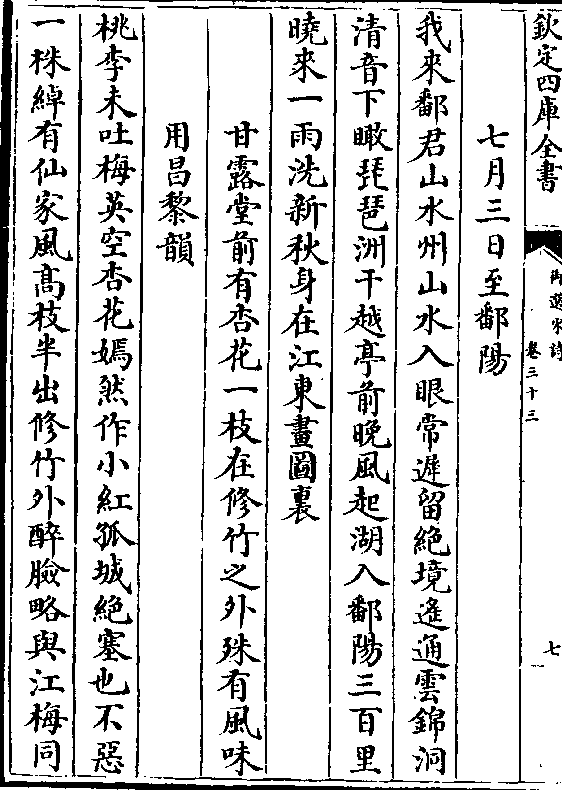 欽定四庫全書
御選宋詩
卷三十三
七
七月三日至鄱陽
我來鄱君山水州山水入眼常遲留絶境遙通雲錦洞
清音下瞰琵琶洲干越亭前晚風起湖入鄱陽三百里
曉來一雨洗新秋身在江東畫圖裏
甘露堂前有杏花一枝在修竹之外殊有風味
用昌黎韻
桃李未吐梅英空杏花嫣然作小紅孤城絶塞也不惡
一株綽有仙家風髙枝半出修竹外醉臉略與江梅同